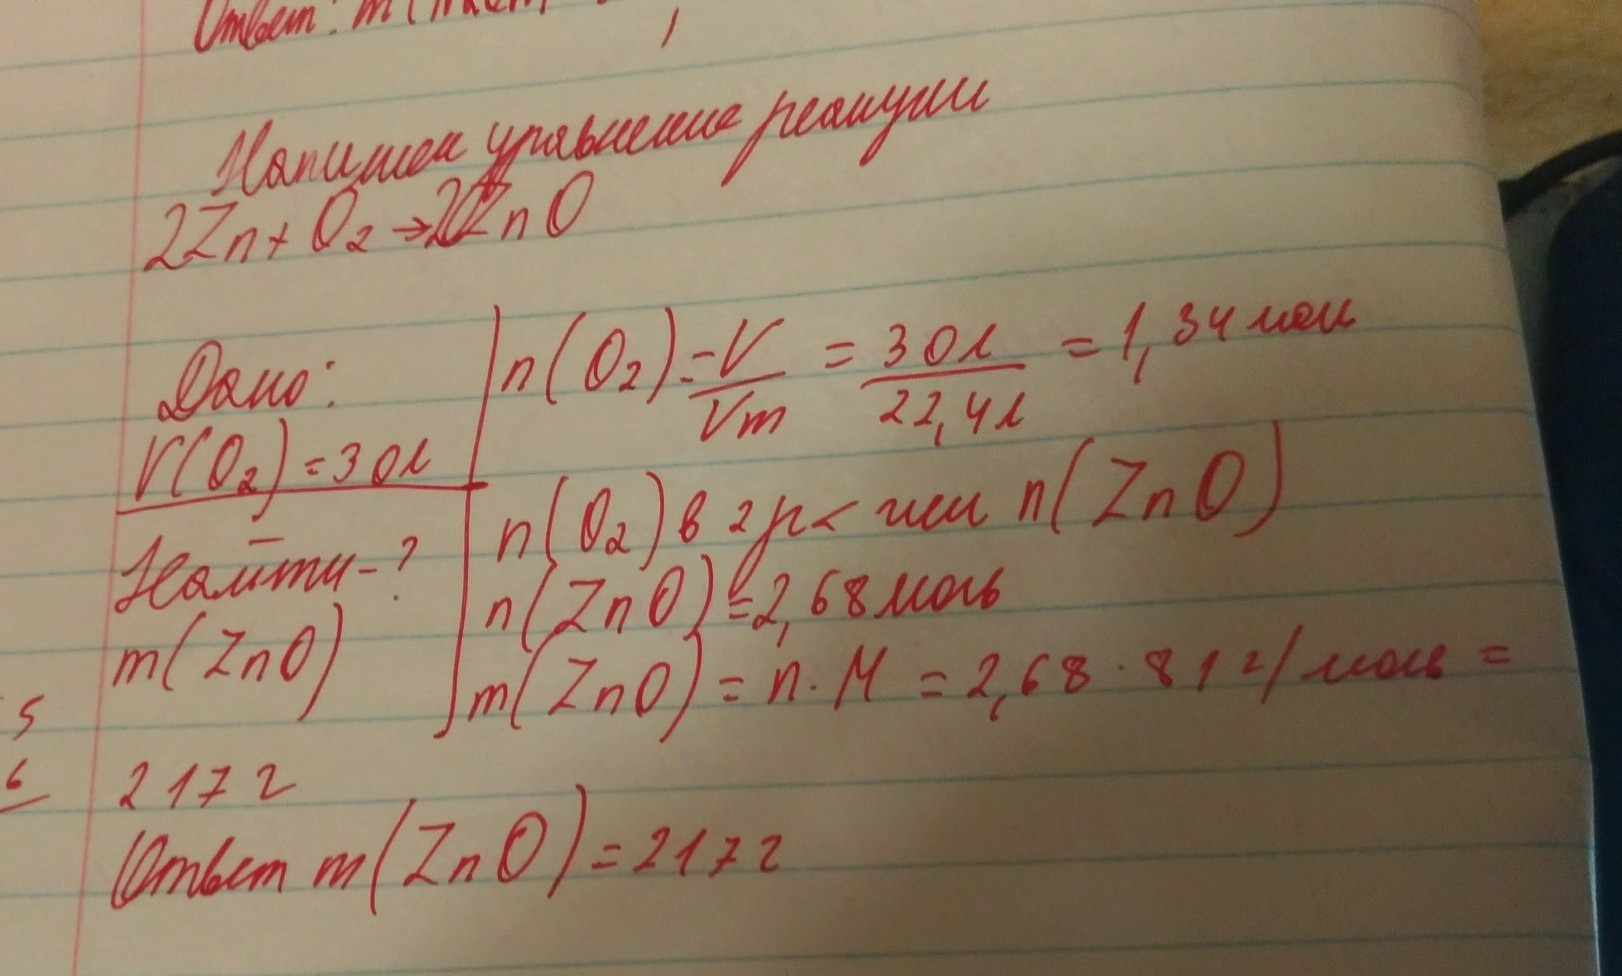 Ответ: m(
Напишем уравнение реакции
2Zn + O₂ → 2ZnO
Дано:
V(O₂) = 30л
Найти - ?
m(ZnO)
n(O₂) = V/Vm = 30л/22,4л = 1,34 моль
n(O₂) в 2р < чем n(ZnO)
n(ZnO) = 2,68 моль
m(ZnO) = n · M = 2,68 · 81 г/моль =
5
6
217 г
Ответ m(ZnO) = 217 г